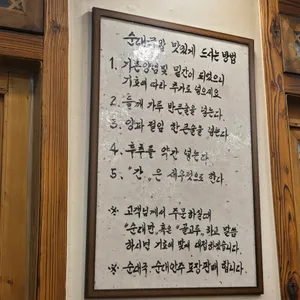 순대국을 맛있게 드시는 방법
1. 기본양념 및 밑간이 되었으니
기호에 따라 추가로 넣으세요
2. 들깨 가루 반큰술을 넣는다
3. 양파 절임 한큰술을 넣는다
4. 후추를 약간 넣는다
5. "간"은 새우젓으로 한다
※ 고객님께서 주문하실때
"순대만" 혹은 "골고루" 하고 말씀
하시면 기호에 맞게 대접하겠습니다.
※ 순대국. 순대안주 포장판매 합니다.